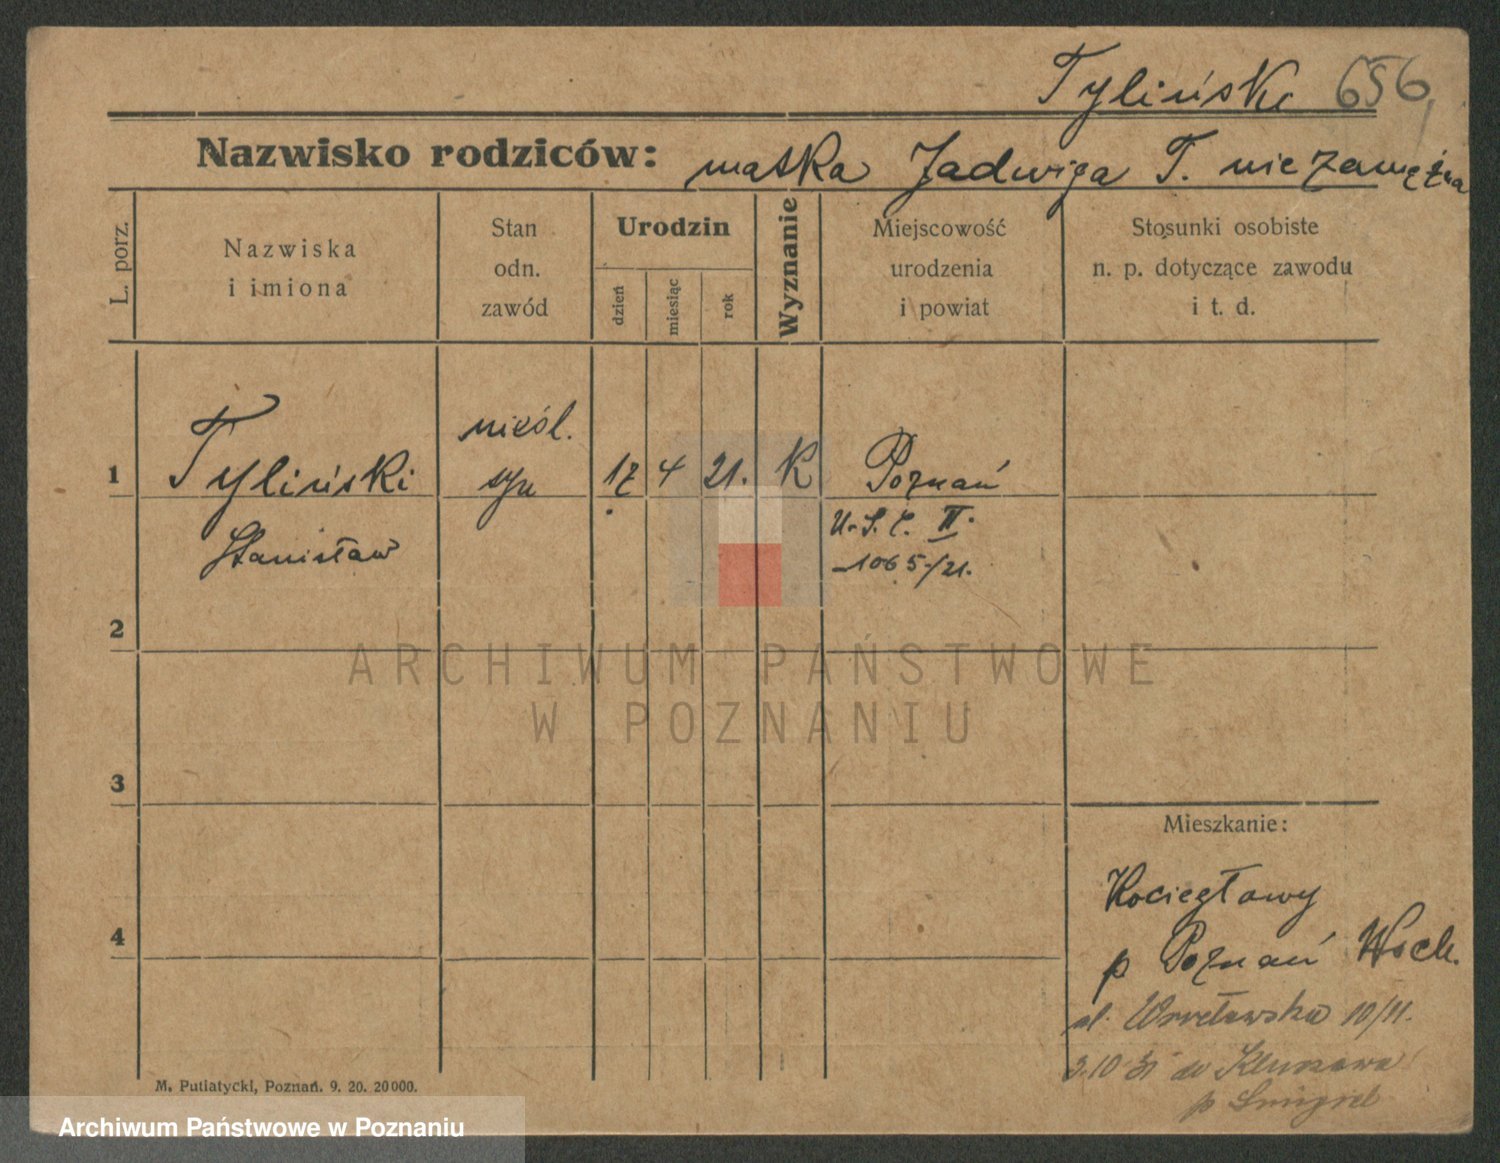 Tyliński 656
Nazwisko rodziców: matka Jadwiga T. niezamężna
L. porz.
Nazwiska
i imiona
Stan
odn.
zawód
Urodzin
dzień
miesiąc
rok
Wyznanie
Miejscowość
urodzenia
i powiat
Stosunki osobiste
n. p. dotyczące zawodu
i t. d.
nieśl.
1 Tyliński syn 17 4 21. K Poznań
Stanisław
U. S. C. II.
1065/21.
2
ARCHIWUM PAŃSTWOWE
W POZNANIU
3
Mieszkanie:
4
Kociegłowy
p Poznań Wsch.
ul. Wrocławska 10/11.
3.10.31 do
p Śmigiel
M. Putiatycki, Poznań. 9. 20. 20000.
Archiwum Państwowe w Poznaniu